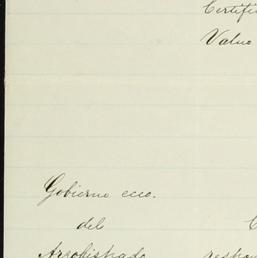 Certifi
Valno
Gobierno ecco.
del
Arzobispado
respon